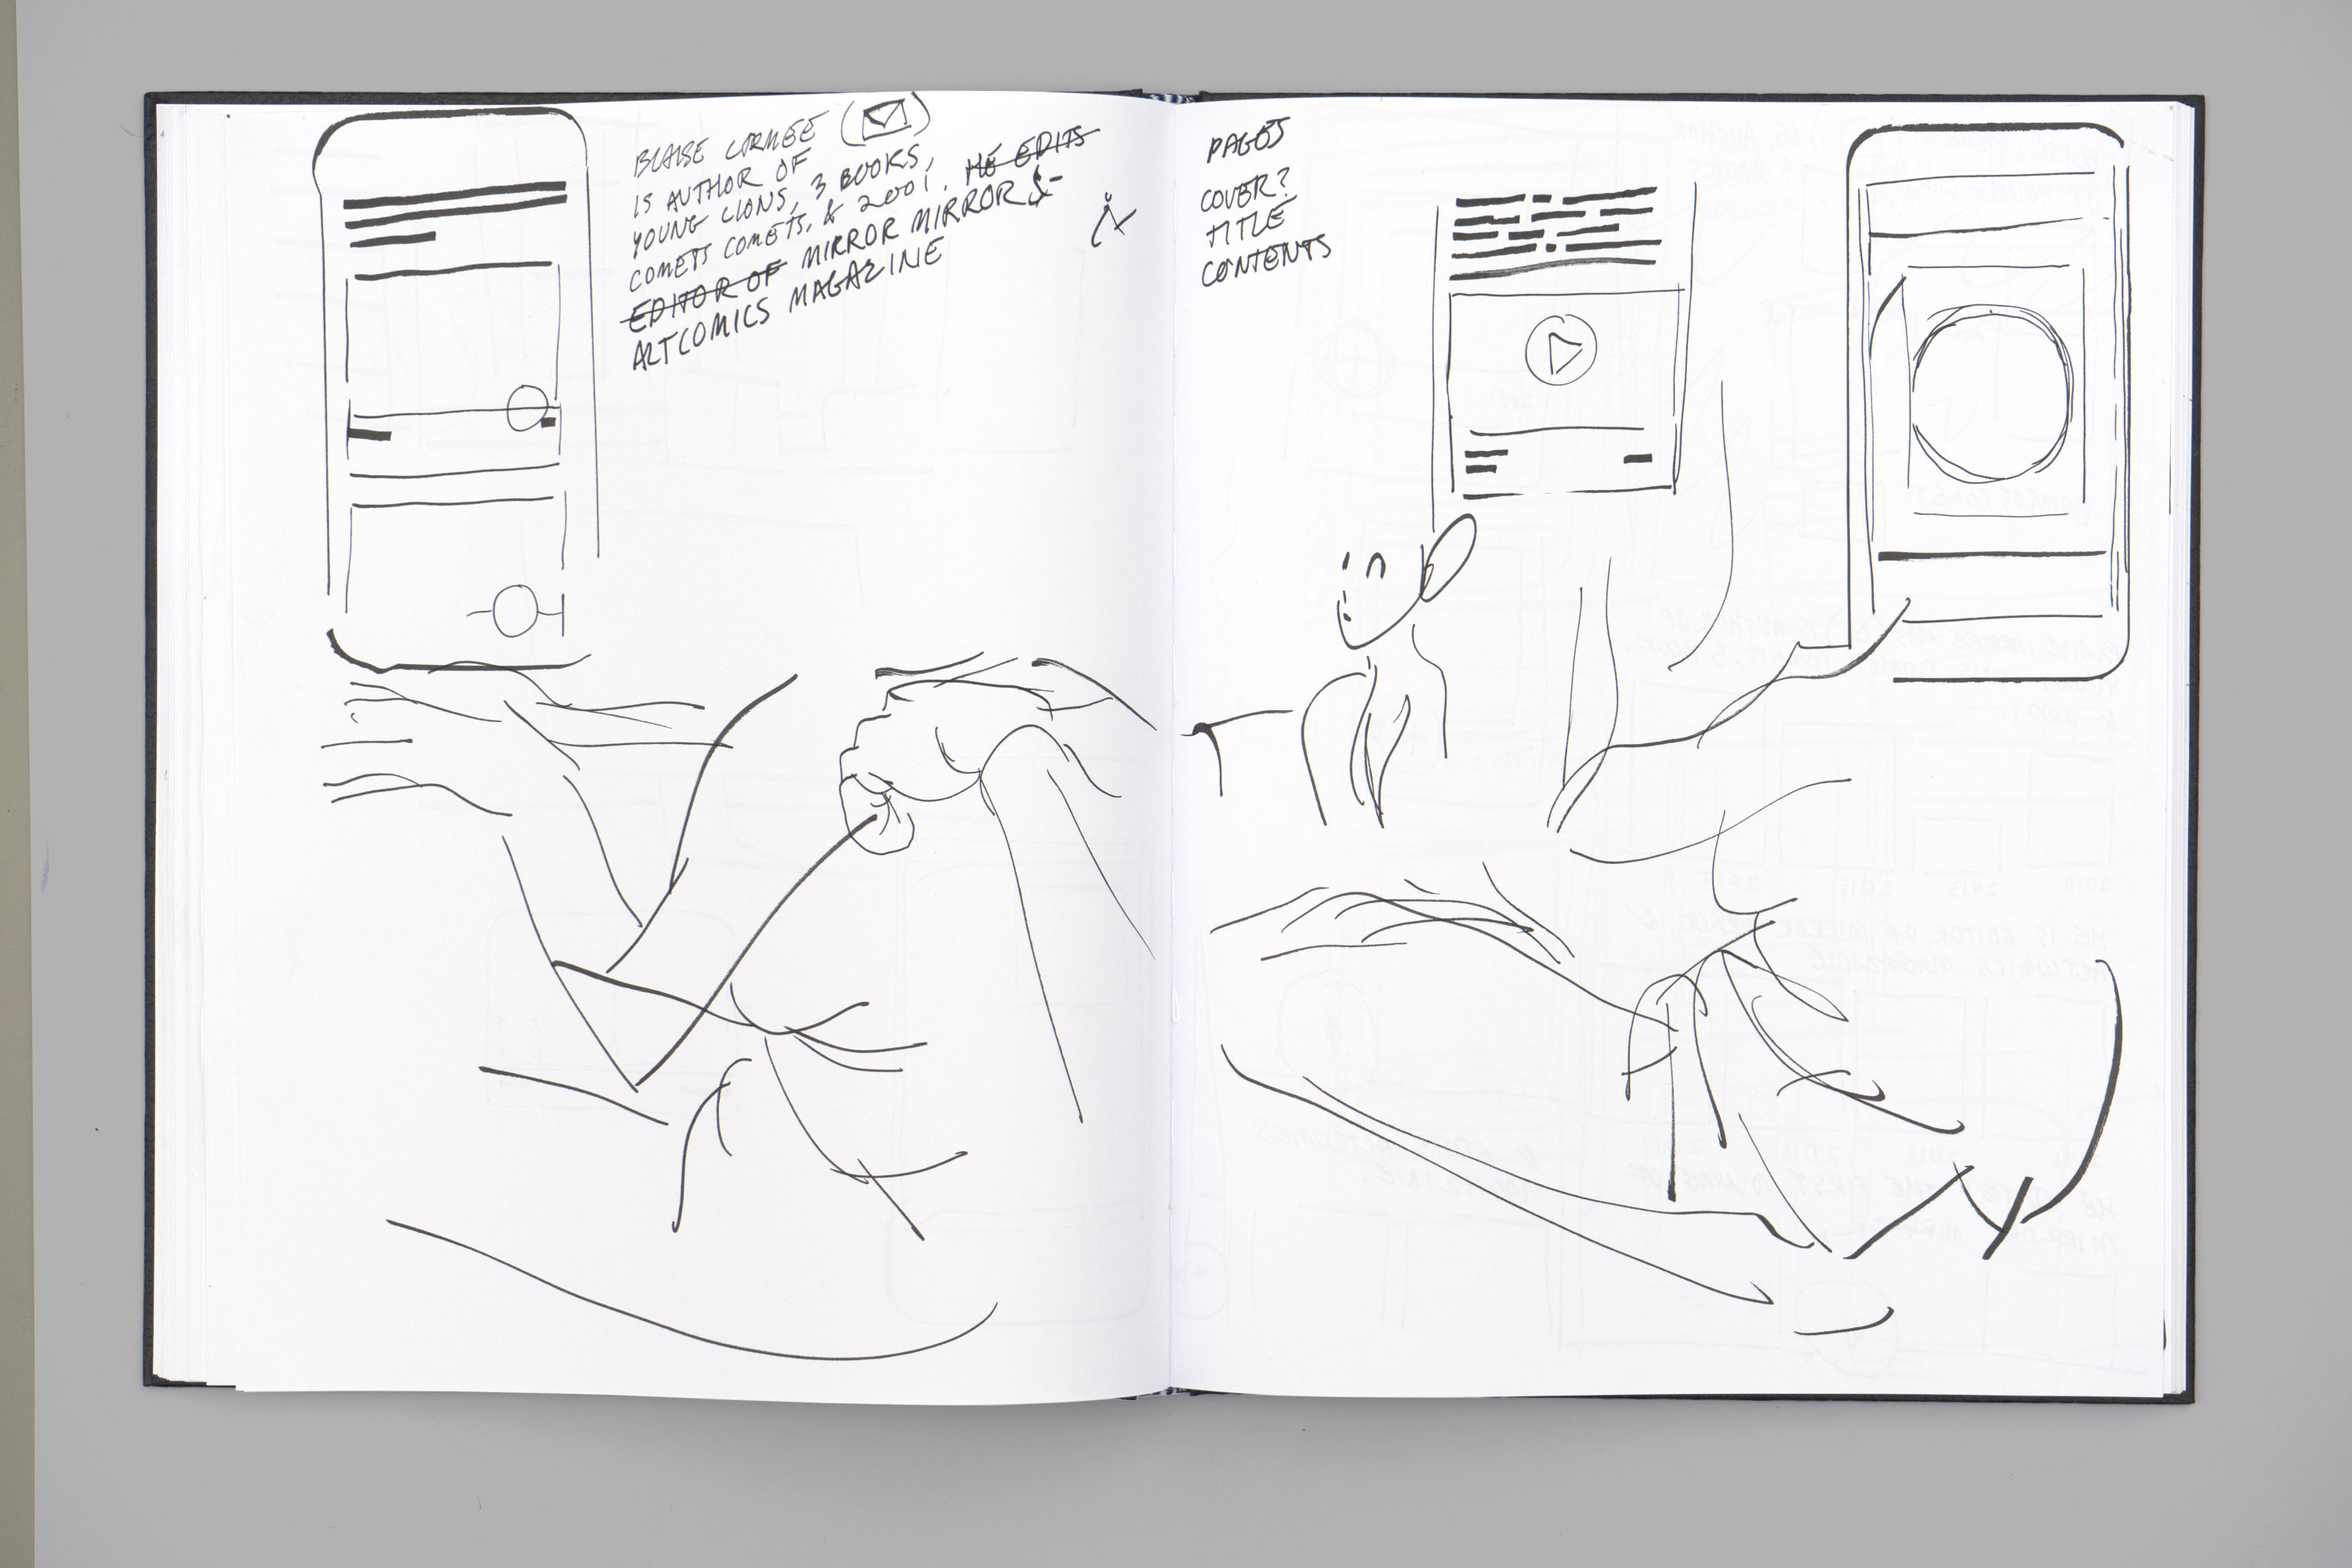 BLAISE LARMEE
IS AUTHOR OF
YOUNG LIONS, 3 BOOKS,
COMETS COMETS, & 2001. HE EDITS
EDITOR OF MIRROR MIRROR &
ALTCOMICS MAGAZINE
PAGES
COVER?
TITLE
CONTENTS